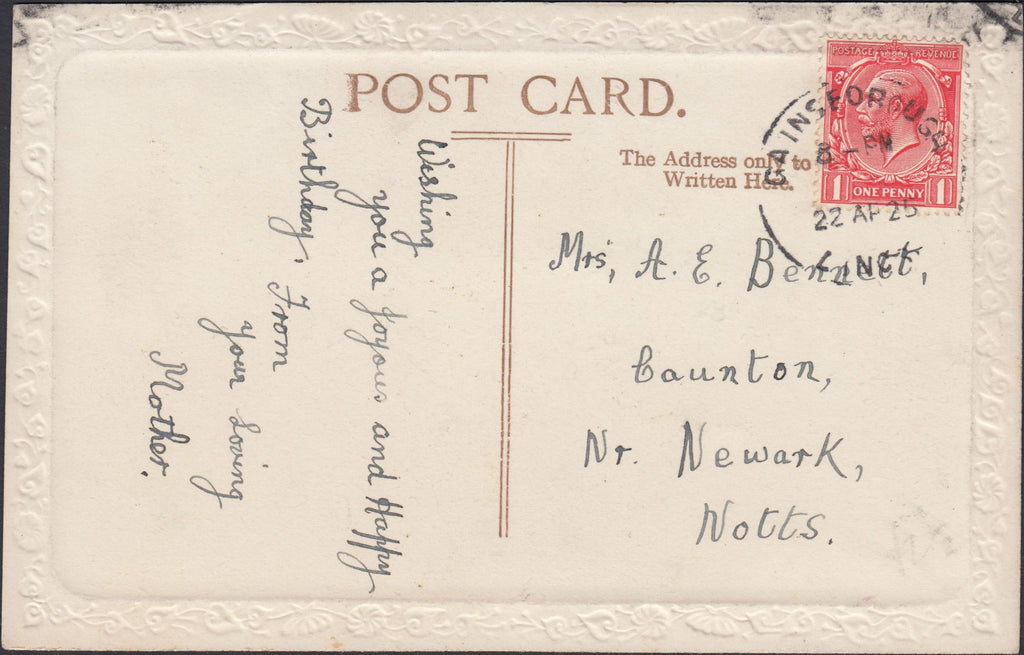 POST CARD.
Wishing
you a Joyous and Happy
Birthday, From
your Loving
Mother.
The Address only to
Written Here.
POSTAGE REVENUE
1 ONE PENNY 1
GAINSBOROUGH
8 - PM
22 AP 25
LINCS
Mrs, A. E. Bennett,
Caunton,
Nr. Newark,
Notts.